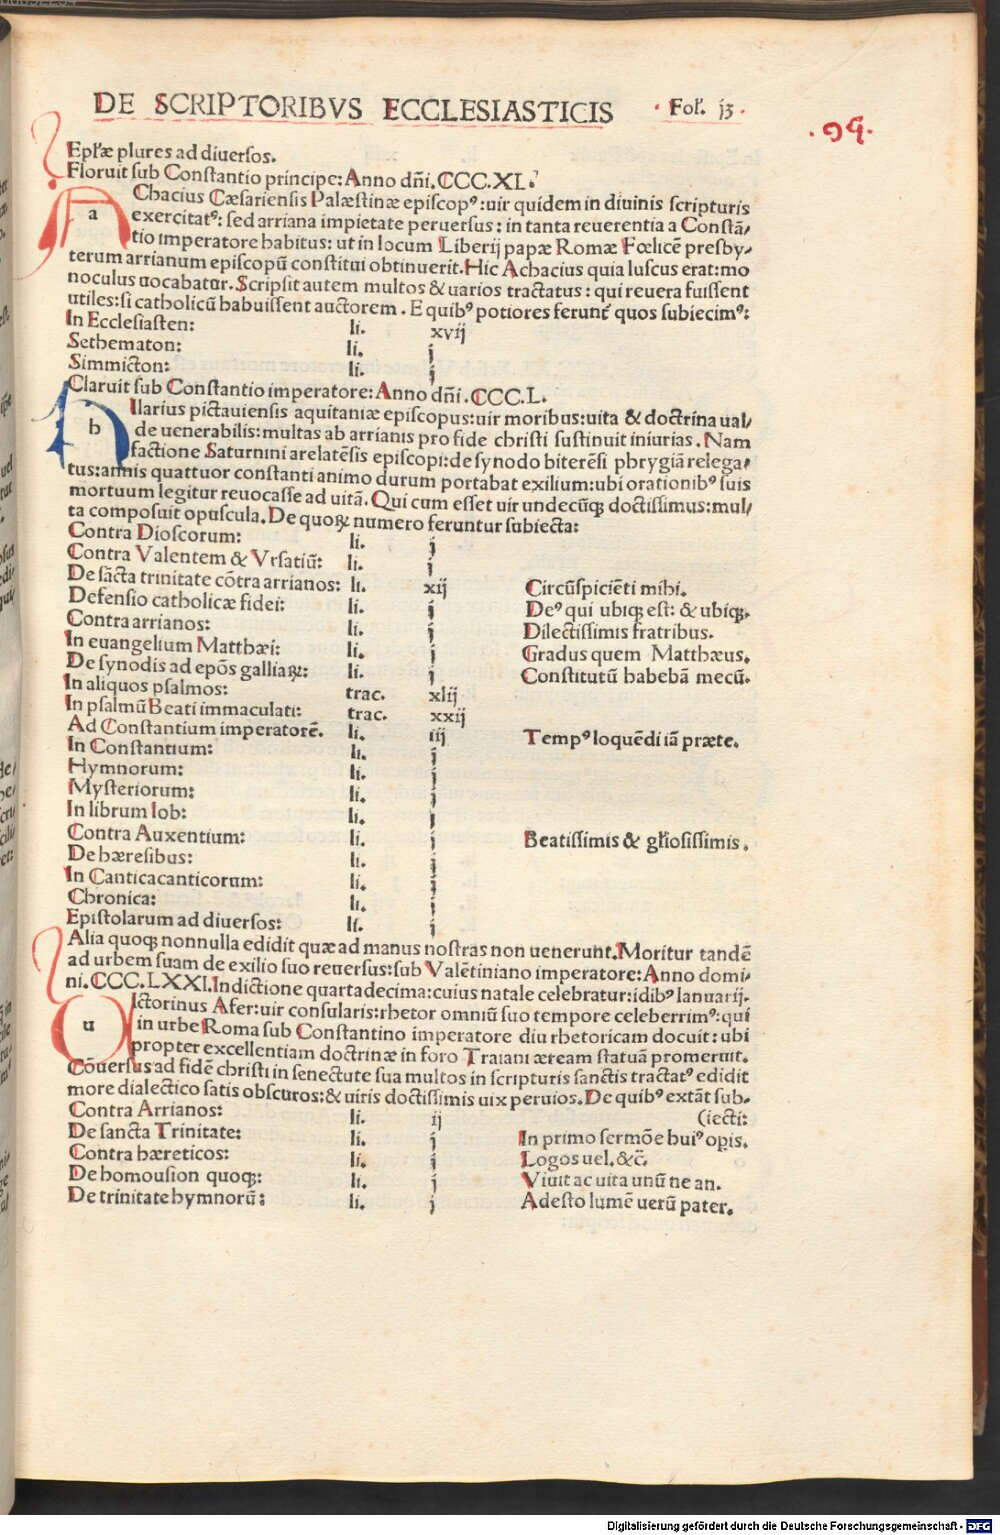 DE SCRIPTORIBVS ECCLESIASTICIS · Fol. 13 ·
Eplæ plures ad diuersos.
Floruit sub Constantio principe: Anno dñi. CCC.XL.
AChacius Cæsariensis Palæstinæ episcopꝰ: uir quidem in diuinis scripturis
exercitatꝰ: sed arriana impietate peruersus: in tanta reuerentia a Constã/
tio imperatore habitus: ut in locum Liberij papæ Romæ Fœlicẽ presby/
terum arrianum episcopũ constitui obtinuerit. Hic Achacius quia luscus erat: mo
noculus uocabatur. Scripsit autem multos & uarios tractatus: qui reuera fuissent
utiles: si catholicũ habuissent auctorem. E quibꝰ potiores ferunt̃ quos subiecimꝰ:
In Ecclesiasten: li. xvij
Sethematon: li. j
Simmicton: li. j
Claruit sub Constantio imperatore: Anno dñi. CCC.L.
hIlarius pictauiensis aquitaniæ episcopus: uir moribus: uita & doctrina ual/
de uenerabilis: multas ab arrianis pro fide christi sustinuit iniurias. Nam
factione Saturnini arelatẽsis episcopi: de synodo biterẽsi phrygiã relega/
tus: annis quattuor constanti animo durum portabat exilium: ubi orationibꝰ suis
mortuum legitur reuocasse ad uitã. Qui cum esset uir undecũqꝫ doctissimus: mul/
ta composuit opuscula. De quoꝝ numero feruntur subiecta:
Contra Dioscorum: li. j
Contra Valentem & Vrsatiũ: li. j
De sãcta trinitate cõtra arrianos: li. xij Circũspiciẽti mihi.
Defensio catholicæ fidei: li. j Deꝰ qui ubiqꝫ est: & ubiqꝫ.
Contra arrianos: li. j Dilectissimis fratribus.
In euangelium Matthæi: li. j Gradus quem Matthæus.
De synodis ad epõs galliaꝝ: li. j Constitutũ habebã mecũ.
In aliquos psalmos: trac. xlij
In psalmũ Beati immaculati: trac. xxij
Ad Constantium imperatorẽ. li. iij Tempꝰ loquẽdi iã præte.
In Constantium: li. j
Hymnorum: li. j
Mysteriorum: li. j
In librum Iob: li. j
Contra Auxentium: li. j Beatissimis & gl̃iosissimis.
De hæresibus: li. j
In Canticacanticorum: li. j
Chronica: li. j
Epistolarum ad diuersos: li. j
Alia quoqꝫ nonnulla edidit quæ ad manus nostras non uenerunt. Moritur tandẽ
ad urbem suam de exilio suo reuersus: sub Valẽtiniano imperatore: Anno domi/
ni. CCC.LXXI. Indictione quartadecima: cuius natale celebratur: idibꝰ Ianuarij.
uIctorinus Afer: uir consularis: rhetor omniũ suo tempore celeberrimꝰ: qui
in urbe Roma sub Constantino imperatore diu rhetoricam docuit: ubi
propter excellentiam doctrinæ in foro Traiani æream statuã promeruit.
Cõuersus ad fidẽ christi in senectute sua multos in scripturis sanctis tractatꝰ edidit
more dialectico satis obscuros: & uiris doctissimis uix peruios. De quibꝰ extãt sub-
Contra Arrianos: li. ij (iecti:
De sancta Trinitate: li. j In primo sermõe huiꝰ opis.
Contra hæreticos: li. j Logos uel. &c̃.
De homousion quoqꝫ: li. j Viuit ac uita unũ ne an.
De trinitate hymnorũ: li. j Adesto lumẽ uerũ pater.
Digitalisierung gefördert durch die Deutsche Forschungsgemeinschaft - DFG